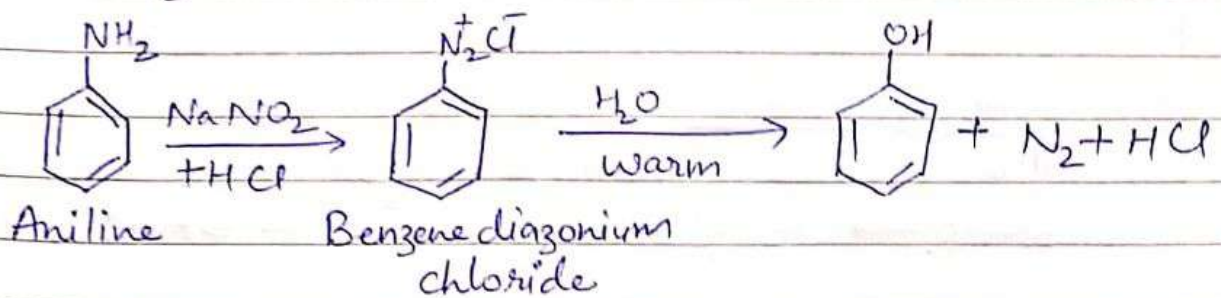 NH₂ N₂⁺Cl⁻ OH
NaNO₂ H₂O
+HCl warm + N₂ + HCl
Aniline Benzene diazonium
chloride